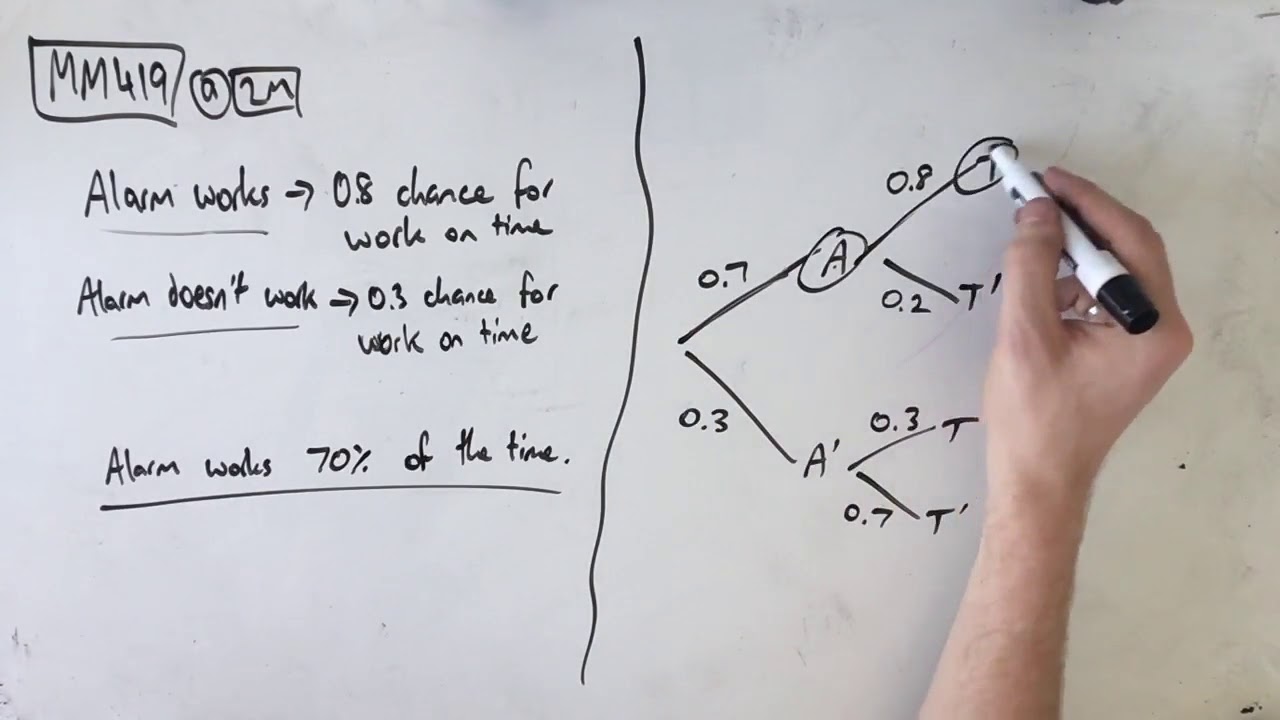 MM419 a 2M
Alarm works → 0.8 chance for
work on time
Alarm doesn't work → 0.3 chance for
work on time
Alarm works 70% of the time.
0.8 T
0.7 A
0.2 T'
0.3 A' 0.3 T
0.7 T'